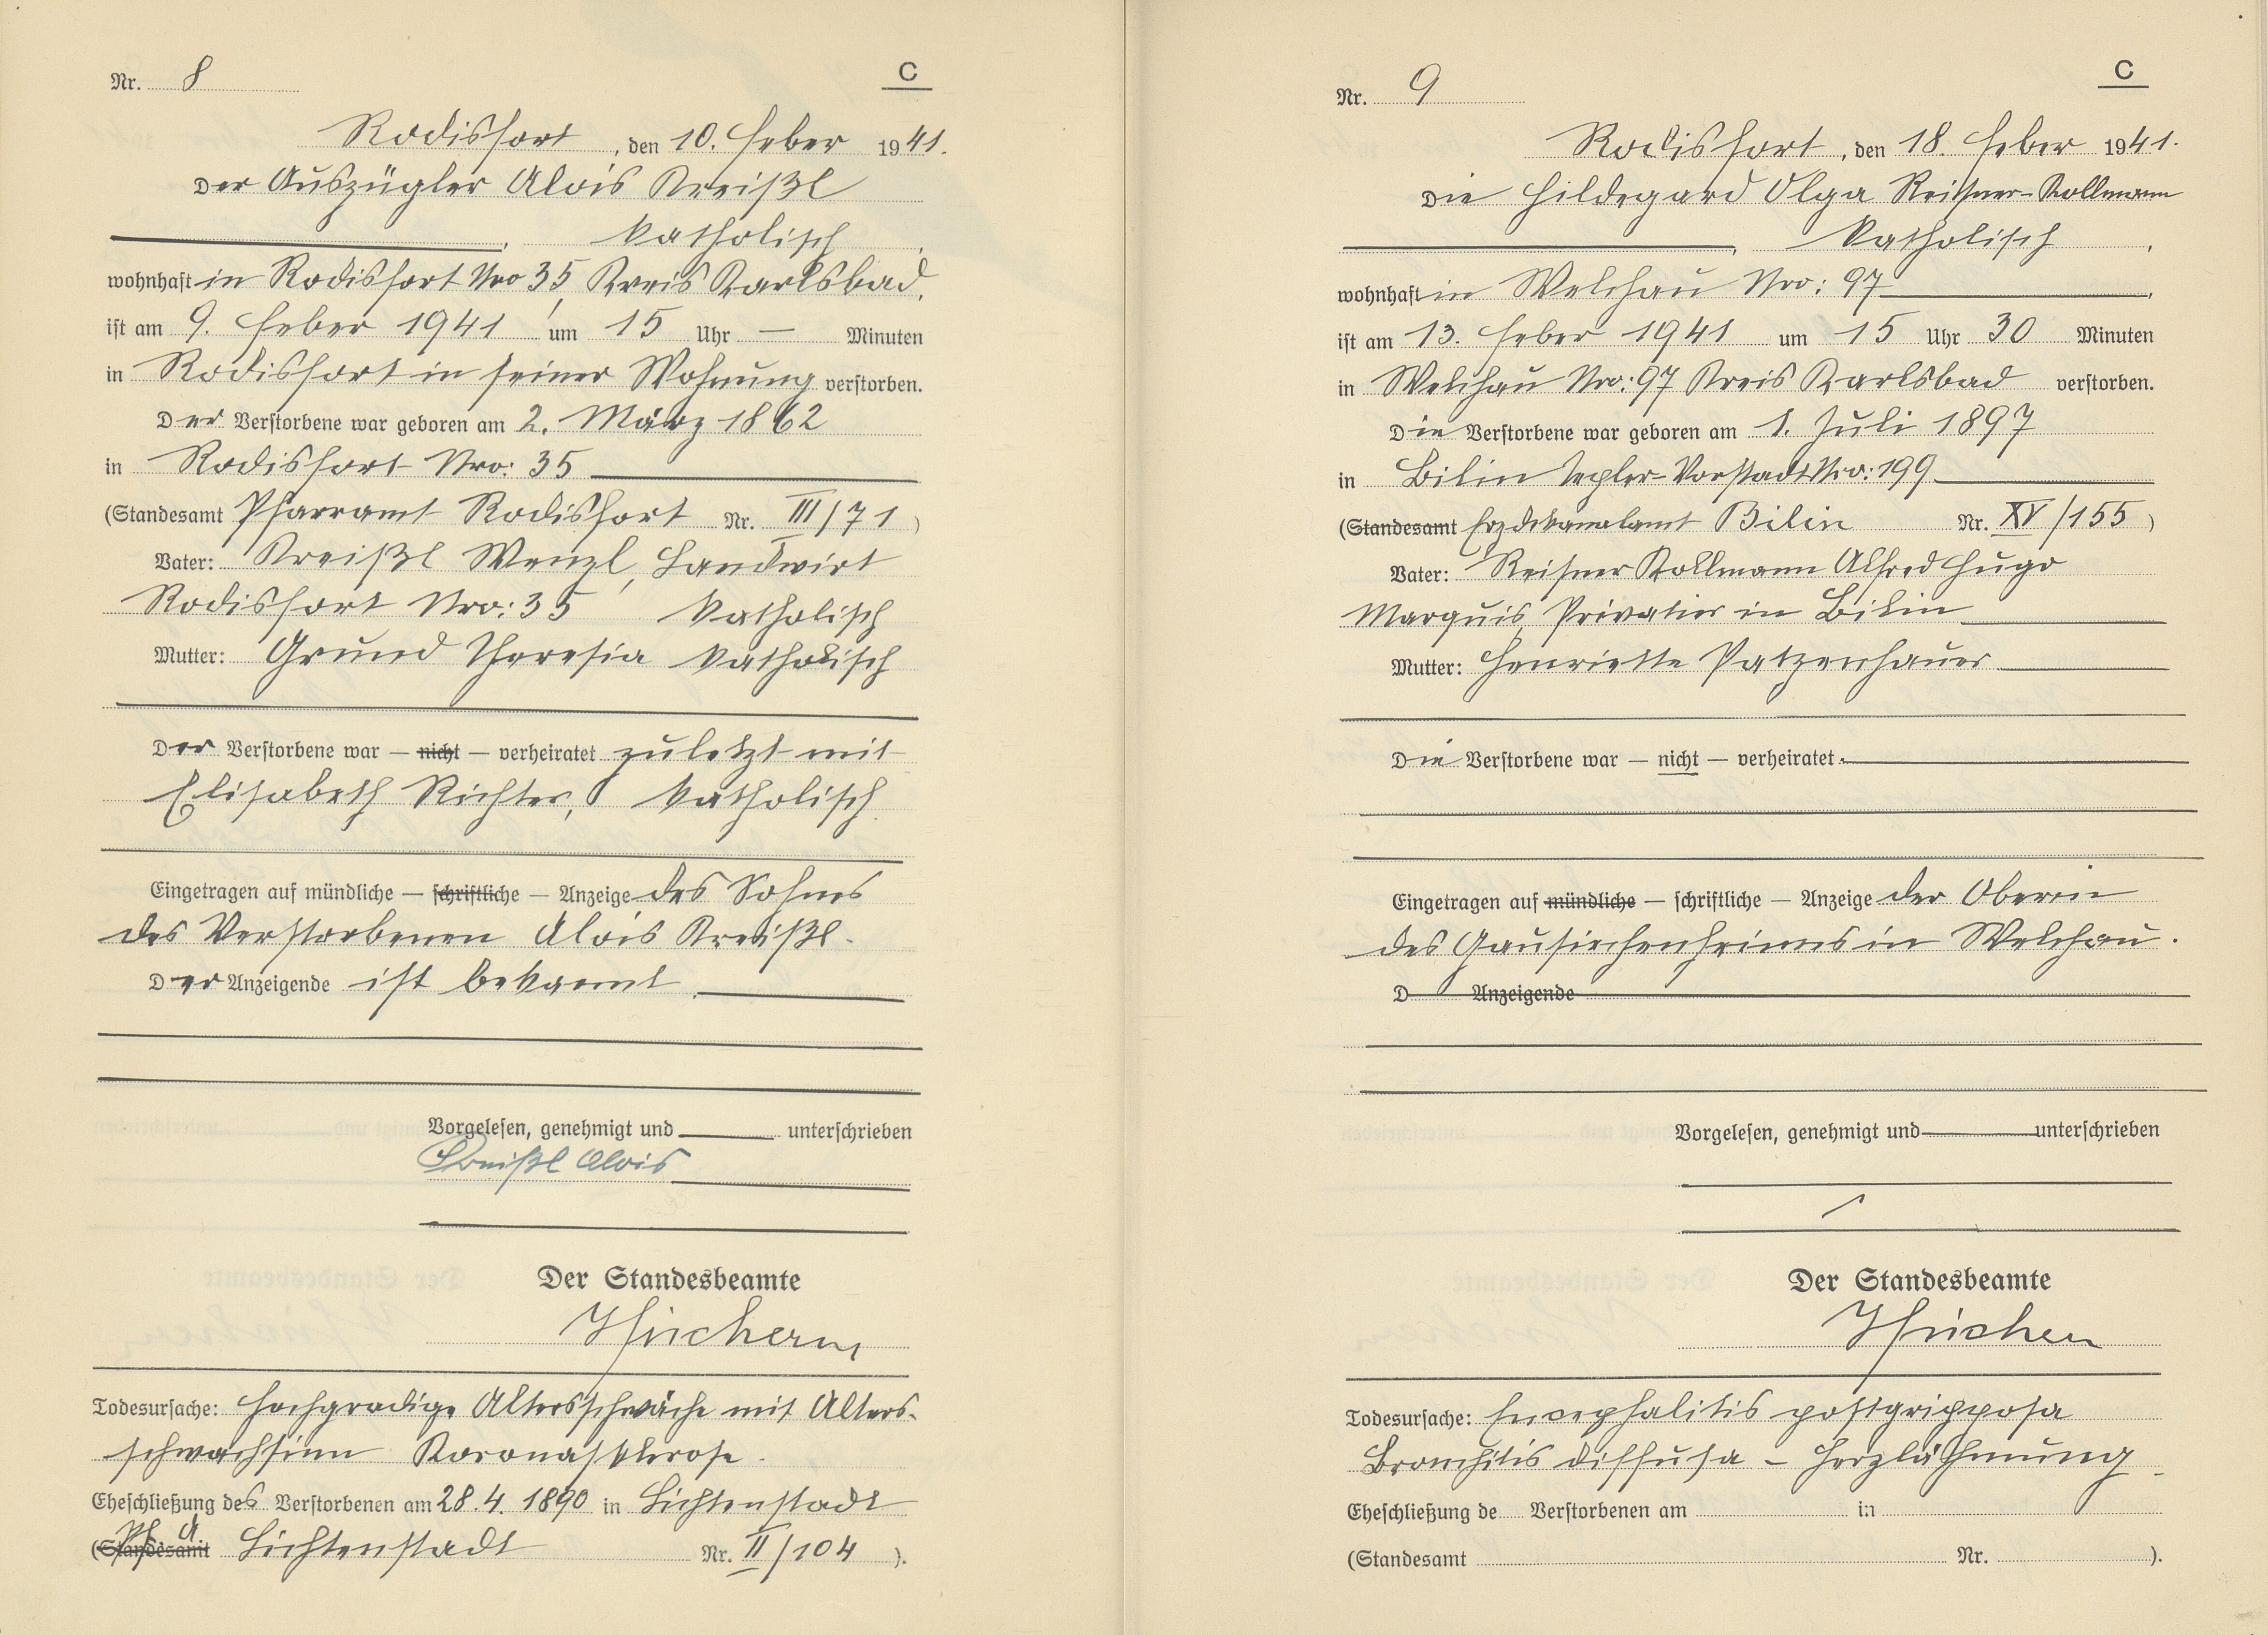 Nr. 8
C
Rodisfort, den 10. Feber 1941.
Der Auszügler Alois Kreißl
, katholisch,
wohnhaft in Rodisfort Nro 35, Kreis Karlsbad,
ist am 9. Feber 1941 um 15 Uhr — Minuten
in Rodisfort in seiner Wohnung verstorben.
Der Verstorbene war geboren am 2. März 1862
in Rodisfort Nro: 35
(Standesamt Pfarramt Rodisfort Nr. III/71)
Vater: Kreißl Wenzl, Landwirt
Rodisfort Nro: 35 katholisch
Mutter: Grund Theresia katholisch
Der Verstorbene war — nicht — verheiratet zuletzt mit
Elisabeth Richter, katholisch.
Eingetragen auf mündliche — schriftliche — Anzeige des Sohnes
des Verstorbenen Alois Kreißl.
Der Anzeigende ist bekannt.
Vorgelesen, genehmigt und unterschrieben
Kreißl Alois
Der Standesbeamte
Todesursache: Hochgradige Altersschwäche mit Alters-
schwachsinn Koronasklerose.
Eheschließung des Verstorbenen am 28.4.1890 in Lichtenstadt
(Standesamt Pf. A. Lichtenstadt Nr. II/104).
Nr. 9
C
Rodisfort, den 18. Feber 1941.
Die Hildegard Olga Reisner-Kollmann
, katholisch,
wohnhaft in Welchau Nro: 97,
ist am 13. Feber 1941 um 15 Uhr 30 Minuten
in Welchau Nro: 97 Kreis Karlsbad verstorben.
Die Verstorbene war geboren am 1. Juli 1897
in Bilin Vorstadt Nro: 199
(Standesamt Erzdekanalamt Bilin Nr. XV/155)
Vater: Reisner Kollmann Alfred Hugo
Marquis, Privatier in Bilin
Mutter: Henriette Patzenhauer
Die Verstorbene war — nicht — verheiratet.
Eingetragen auf mündliche — schriftliche — Anzeige der Oberin
des Gausiechenheimes in Welchau.
D Anzeigende
Vorgelesen, genehmigt und unterschrieben
Der Standesbeamte
Todesursache: Encephalitis postgripposa
Bronchitis diffusa – Herzlähmung
Eheschließung de Verstorbenen am in
(Standesamt Nr. ).